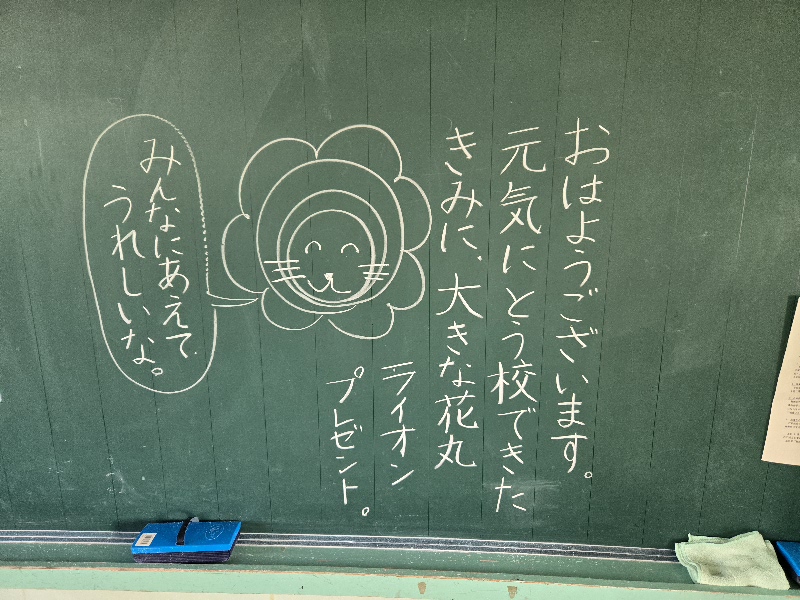 おはようございます。
元気にとう校できた
きみに、大きな花丸
ライオン
プレゼント。
みんなにあえて
うれしいな。